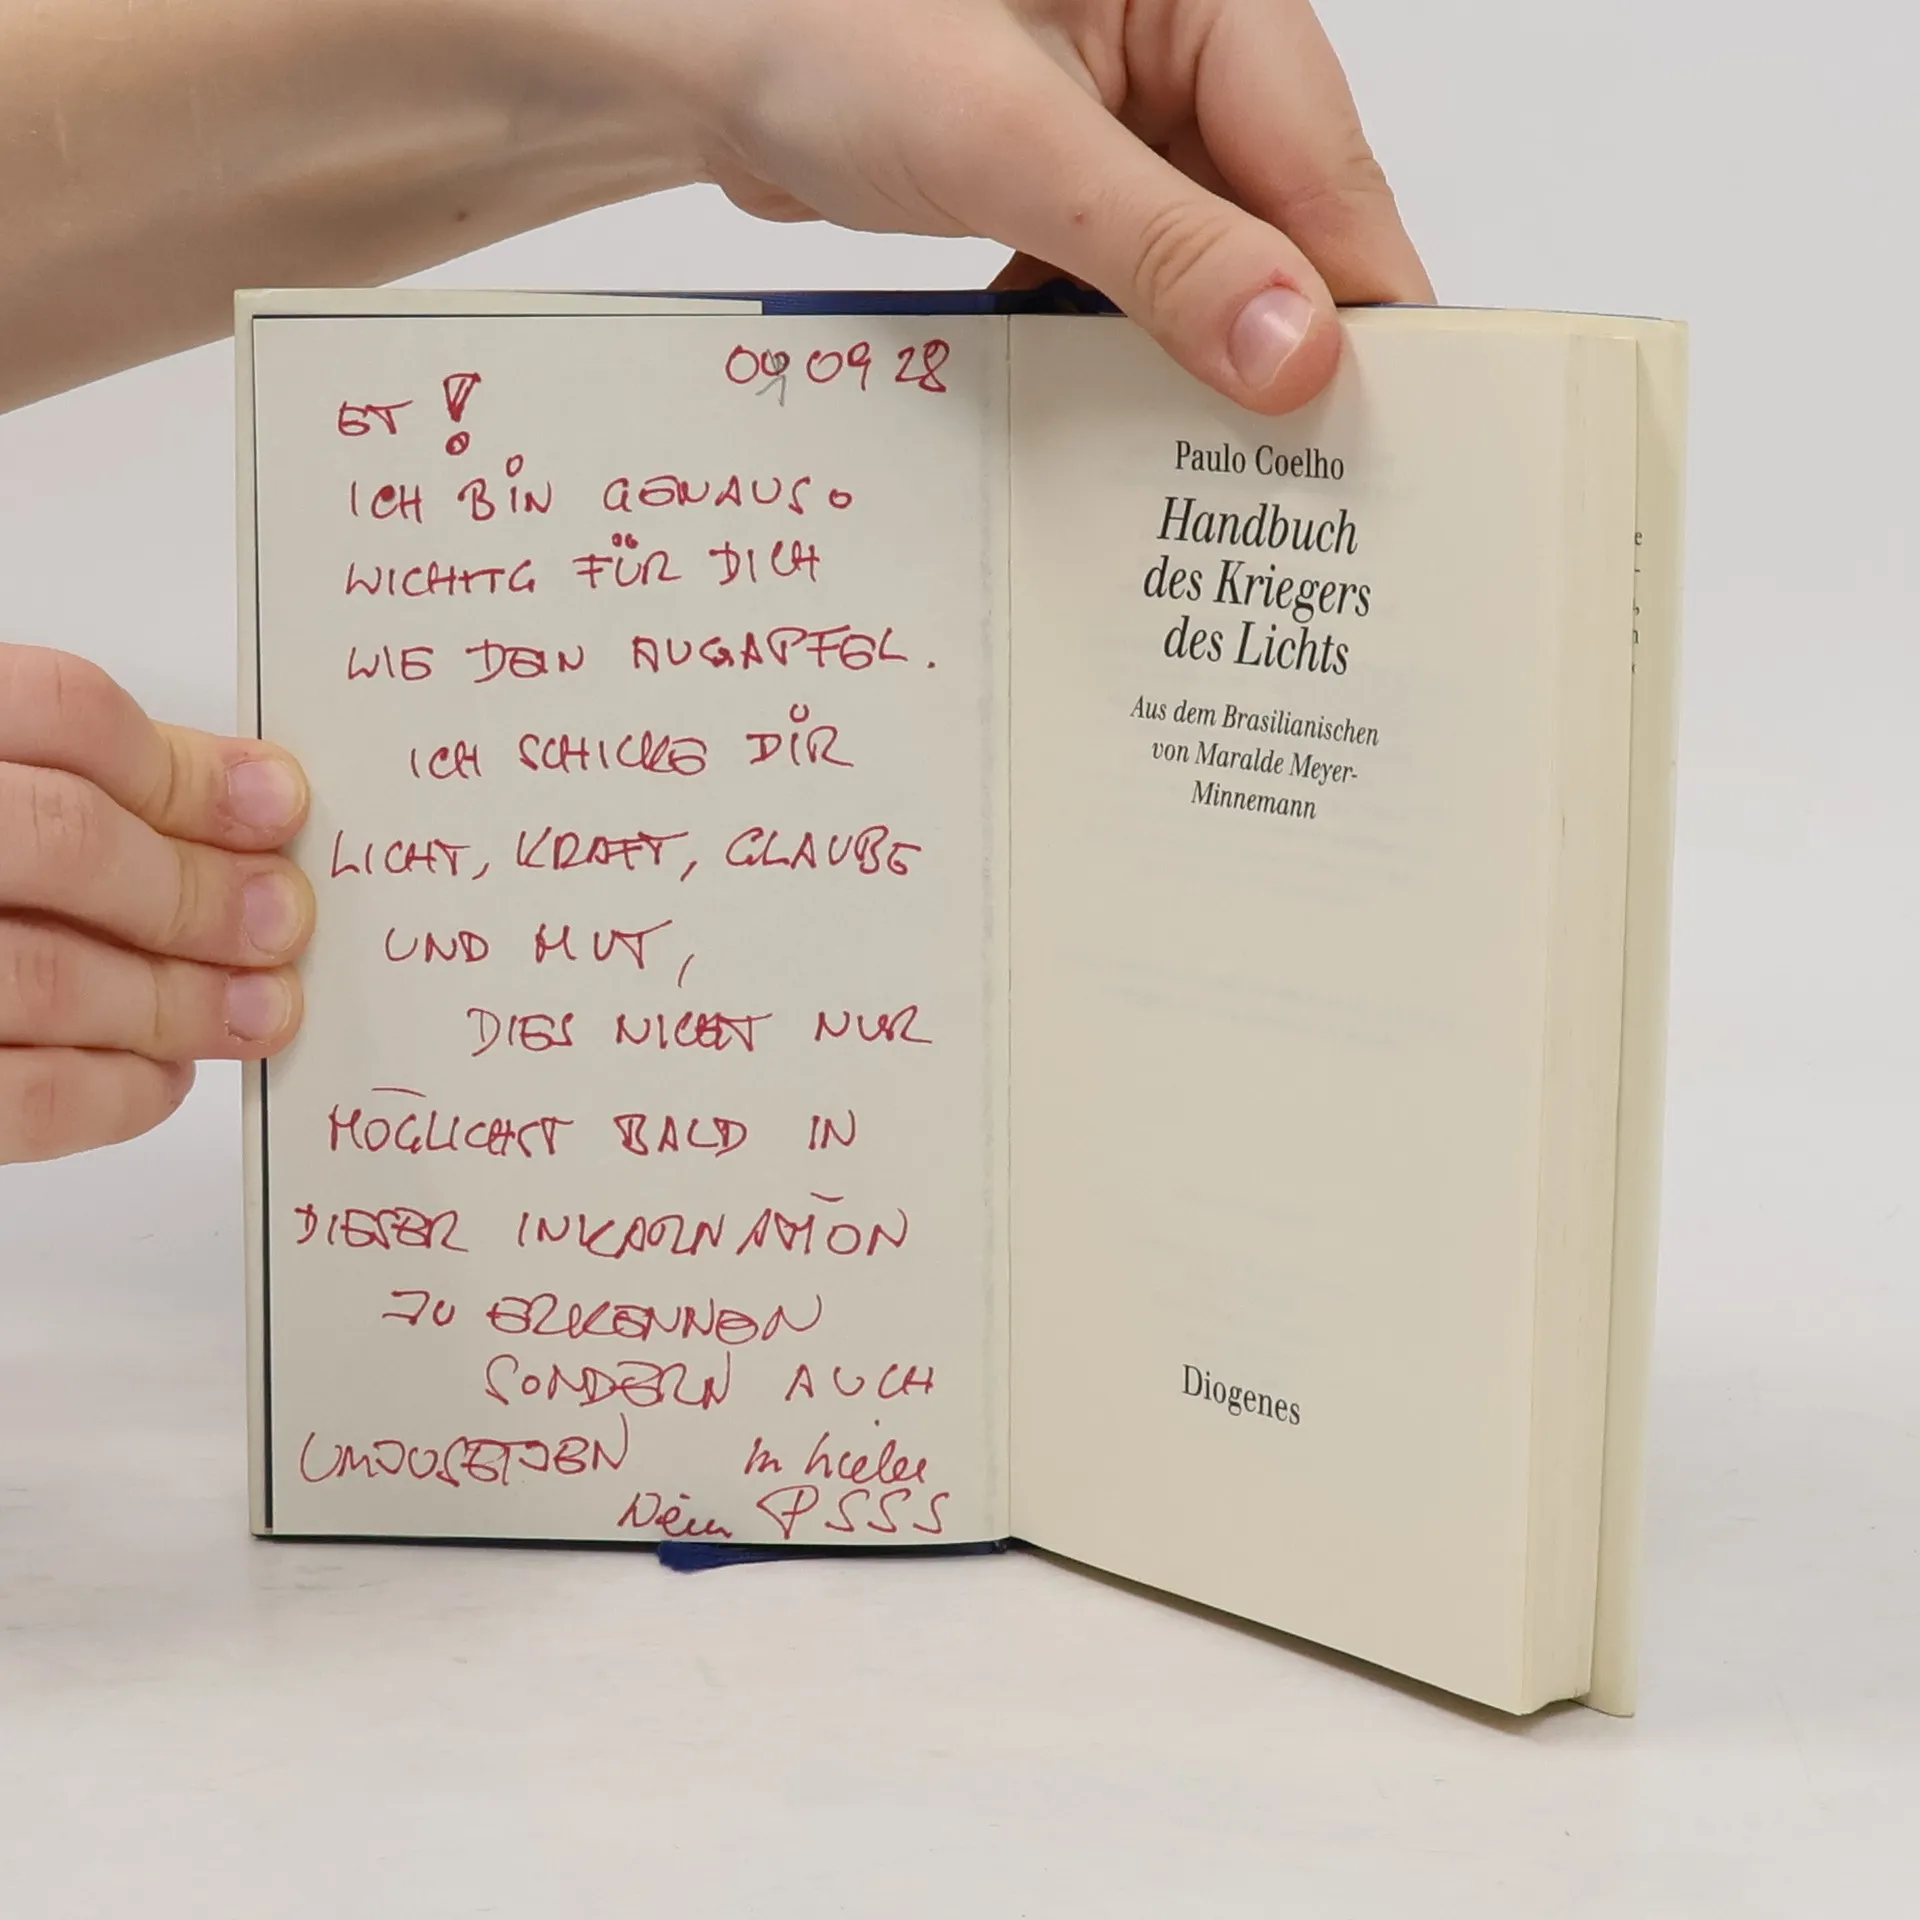 09 09 28
ET!
ICH BIN GENAUSO
WICHTIG FÜR DICH
WIE DEIN AUGAPFEL.
ICH SCHICKE DIR
LICHT, KRAFT, GLAUBE
UND MUT,
DIES NICHT NUR
MÖGLICHST BALD IN
DIESER INKARNATION
ZU ERKENNEN
SONDERN AUCH
UMZUSETZEN
In Liebe
Dein PSSS
Paulo Coelho
Handbuch
des Kriegers
des Lichts
Aus dem Brasilianischen
von Maralde Meyer-
Minnemann
Diogenes